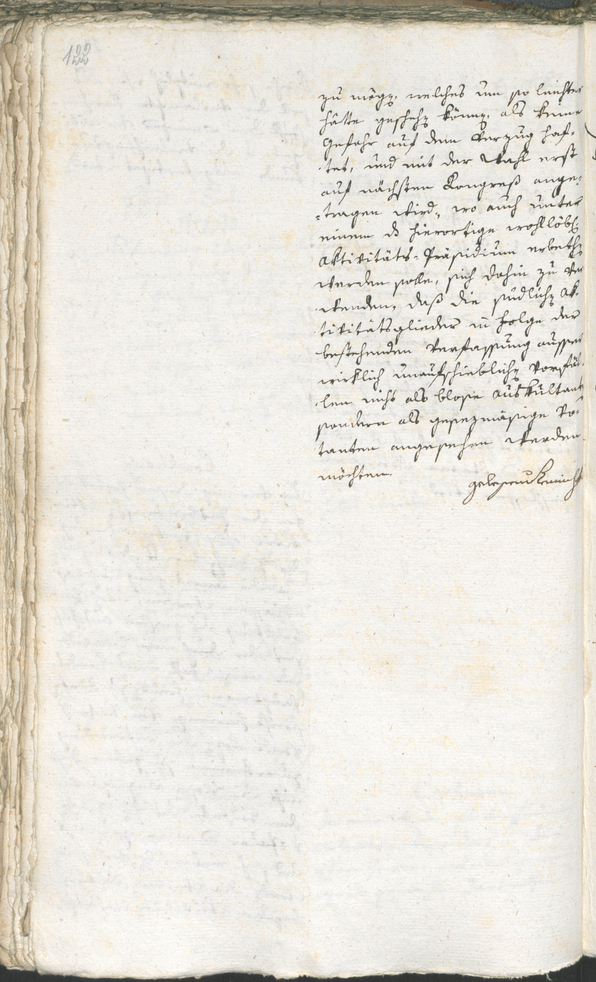 122
zu mögen, welches um so leichter
hätte geschehen können, als keine
Gefahr auf dem Verzug haf-
tet, und mit der Wahl erst
auf nächsten Kongreß ange-
tragen wird, wo auch unter
einem das hierortige wohllöbl.
Aktivitäts-Präsidium erbethen
werden solle, sich dahin zu ver
wenden, daß die südlichen Ak-
tivitätsglieder in Folge der
bestehenden Verfassung ausser
wirklich unaufschieblichen Vorfäl-
len nicht als blosse Auskultant
sondern als gesezmäsige Vo-
tanten angesehen werden
möchten.
gelesen